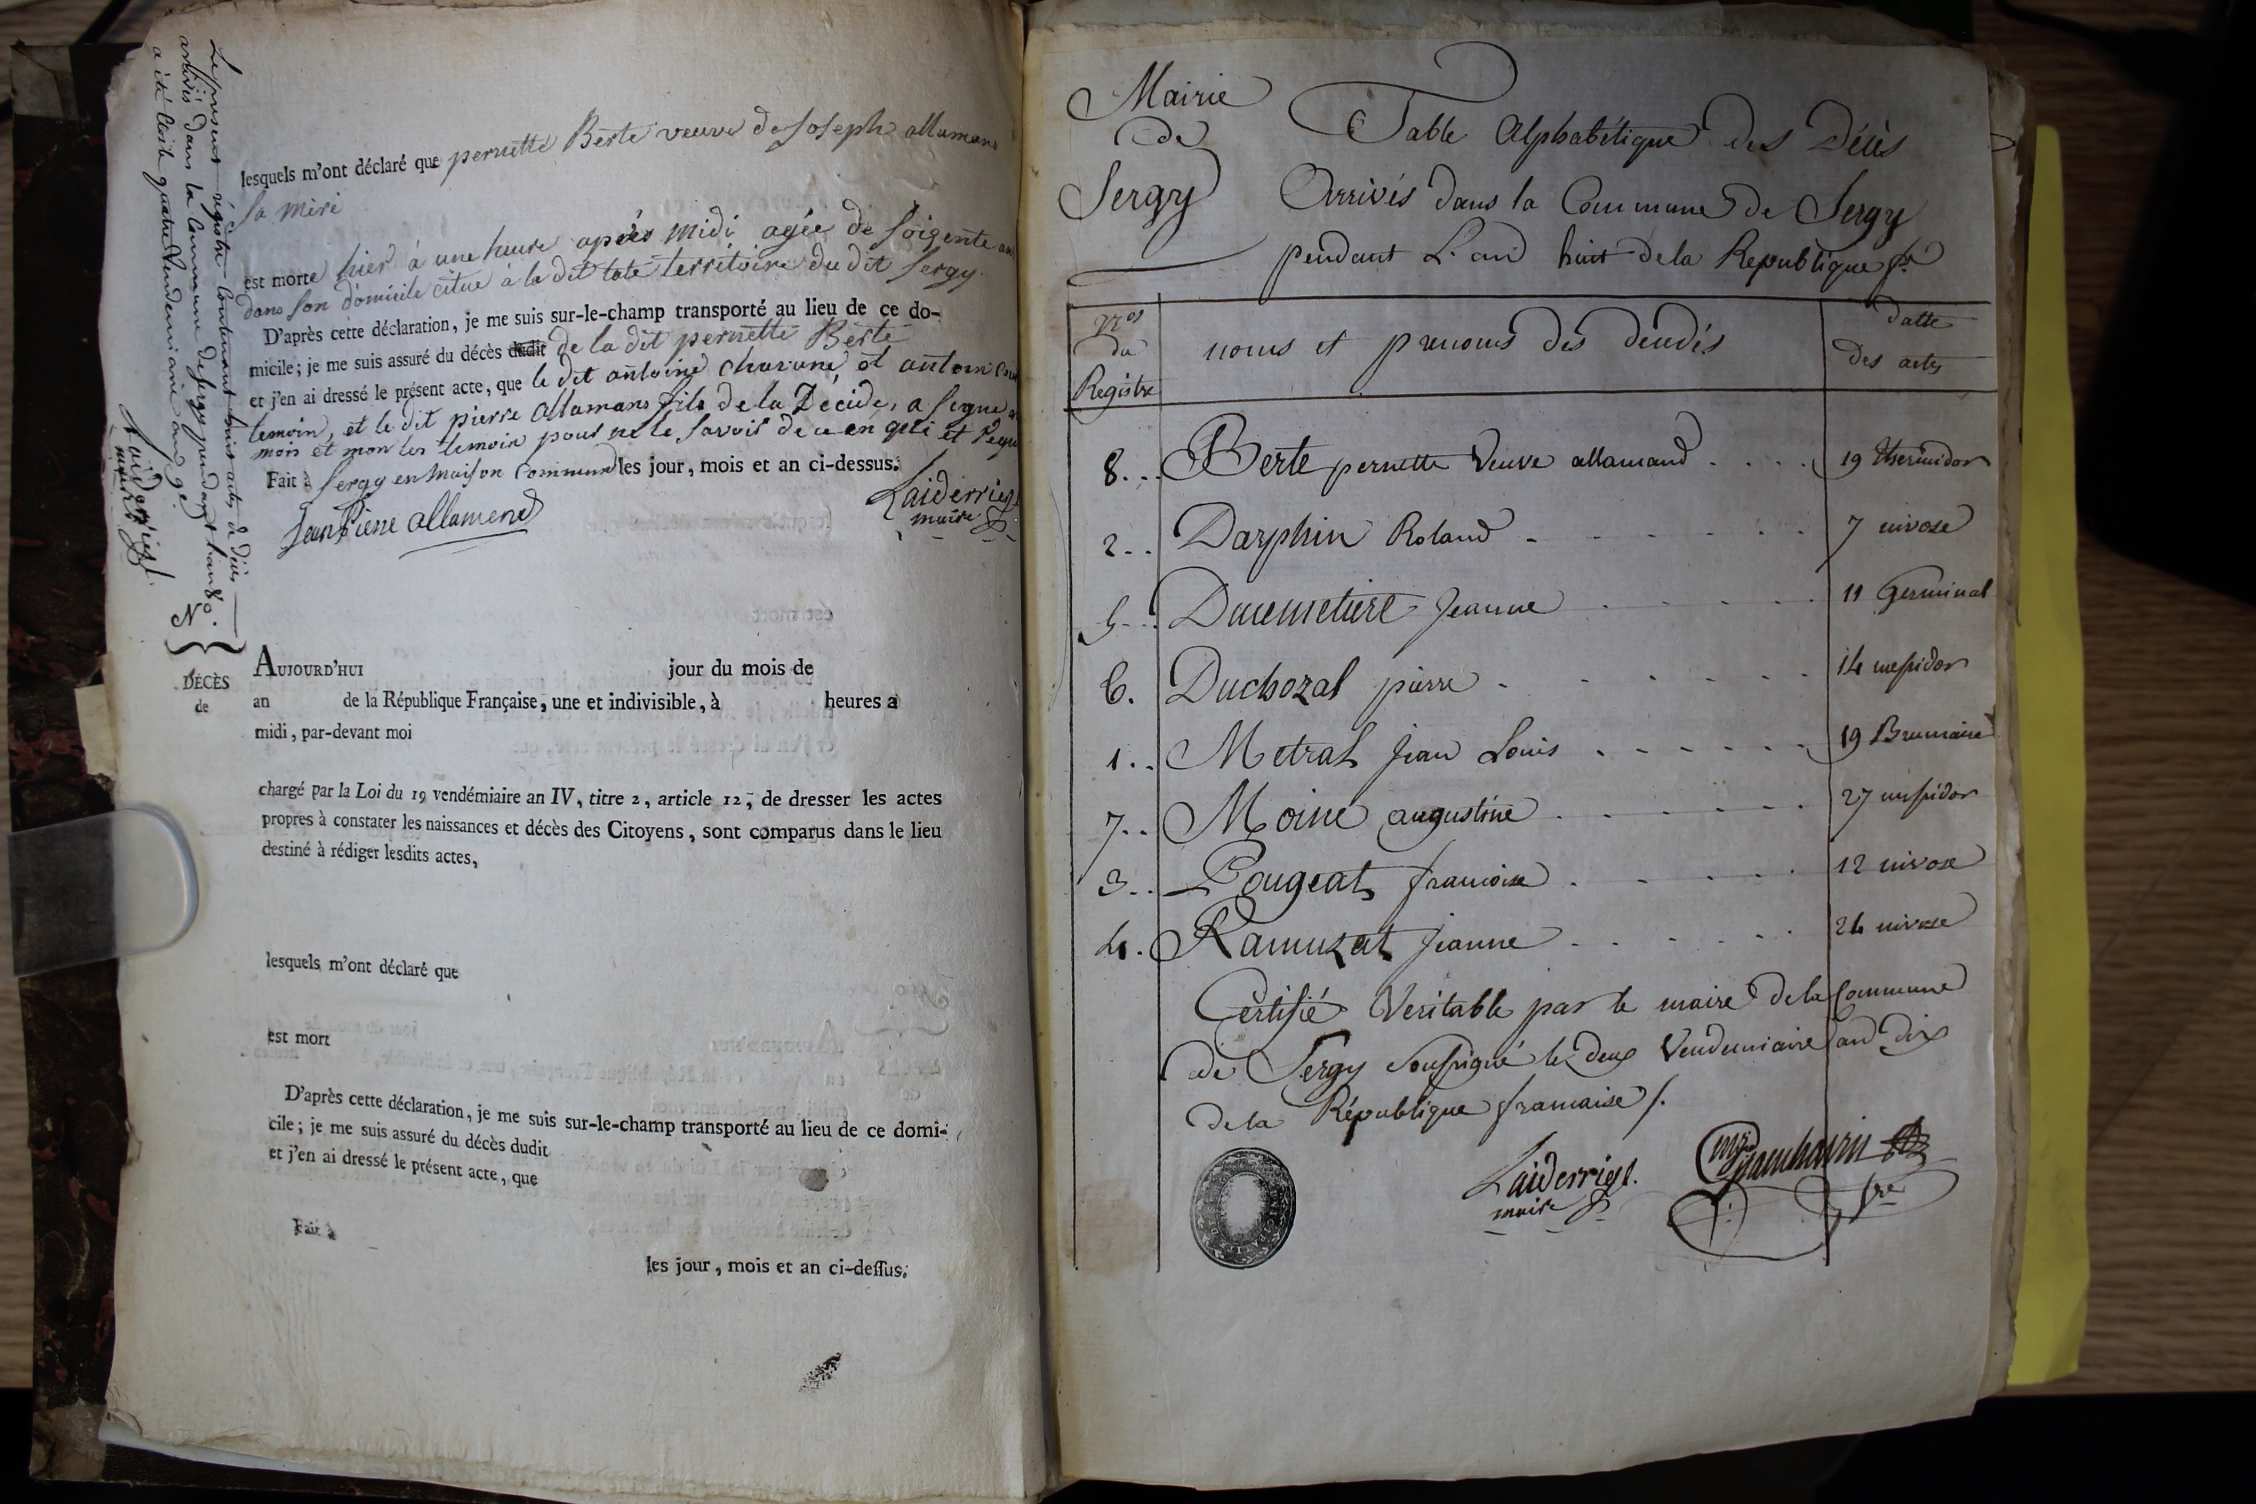 Le présent régistre contenant huit actes de décès
arrivés dans la Commune de Sergy pendant l'an 8e
a été clos le quatre Vendemiaire an 9e
Laiderrier
maire
lesquels m'ont déclaré que pernette Berte veuve de Joseph allamand
sa mere
est morte hier à une heure apérès midi agée de soigente an
dans son domicile citué à la dit tate territoire du dit Sergy.
D'après cette déclaration, je me suis sur-le-champ transporté au lieu de ce do-
micile; je me suis assuré du décès dudit de la dit pernette Berte
et j'en ai dressé le présent acte, que le dit antoine et antoin
temoin, et le dit pierre allamans fils de la Décide, a signe
mois et mon les temoin pour ne le savoir de ce en qeri et requi
Fait à Sergy en maison commune les jour, mois et an ci-dessus.
Jean Pierre allamend
Laiderrier
maire
N°.
DÉCÈS
de
AUJOURD'HUI jour du mois de
an de la République Française, une et indivisible, à heures a
midi, par-devant moi
chargé par la Loi du 19 vendémiaire an IV, titre 2, article 12, de dresser les actes
propres à constater les naissances et décès des Citoyens, sont comparus dans le lieu
destiné à rédiger lesdits actes,
lesquels m'ont déclaré que
est mort
D'après cette déclaration, je me suis sur-le-champ transporté au lieu de ce domi-
cile; je me suis assuré du décès dudit
et j'en ai dressé le présent acte, que
Fait à
les jour, mois et an ci-dessus.
Mairie
de
Sergy
Table Alphabétique des Décès
Arrivés dans la Commune de Sergy
pendant L'an huit de la Republique fse
Nos
du
Registre
noms et prenoms des decedés
datte
des actes
8... Berte pernette Veuve allamand .... 19 thermidor
2.. Darphin Roland ...... 7 nivose
5... Ducimetiere Jeanne ..... 11 Germinal
6. Duchozal pierre ...... 14 messidor
1.. Metral Jean Louis ...... 19 Brumaire
7.. Moine augustine ...... 27 messidor
3.. Pougeat francoise ..... 12 nivose
4. Ramuzat Jeanne ...... 24 nivose
Certifié Véritable par le maire de la Commune
de Sergy soussigné le deux Vendemiaire an dix
de la République francaise /.
Laiderrier
maire